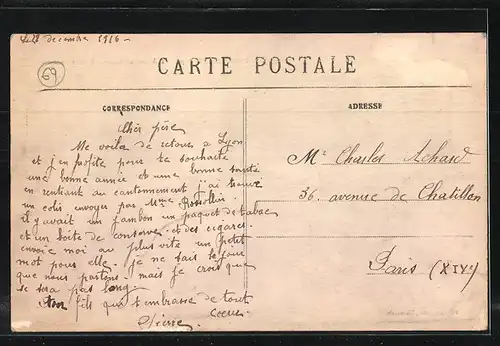 decembre 1916 -
69
CARTE POSTALE
CORRESPONDANCE
ADRESSE
Cher père
Me voila de retour a Lyon
et j'en profite pour te souhaité
une bonne année et une bonne santé
en rentrant au cantonnement j'ai trouvé
un colis envoyer par Mme
il y avait un jambon un paquet de tabac
et un boite de conserve et des cigares.
envoie moi au plus vite un petit
mot pour elle. je ne sait le jour
que nous partons mais je crois que
se sera pas long.
Ton fils qui t'embrasse de tout
coeur
Pierre
Mr Charles Achard
36. avenue de Chatillon
Paris (XIVe)